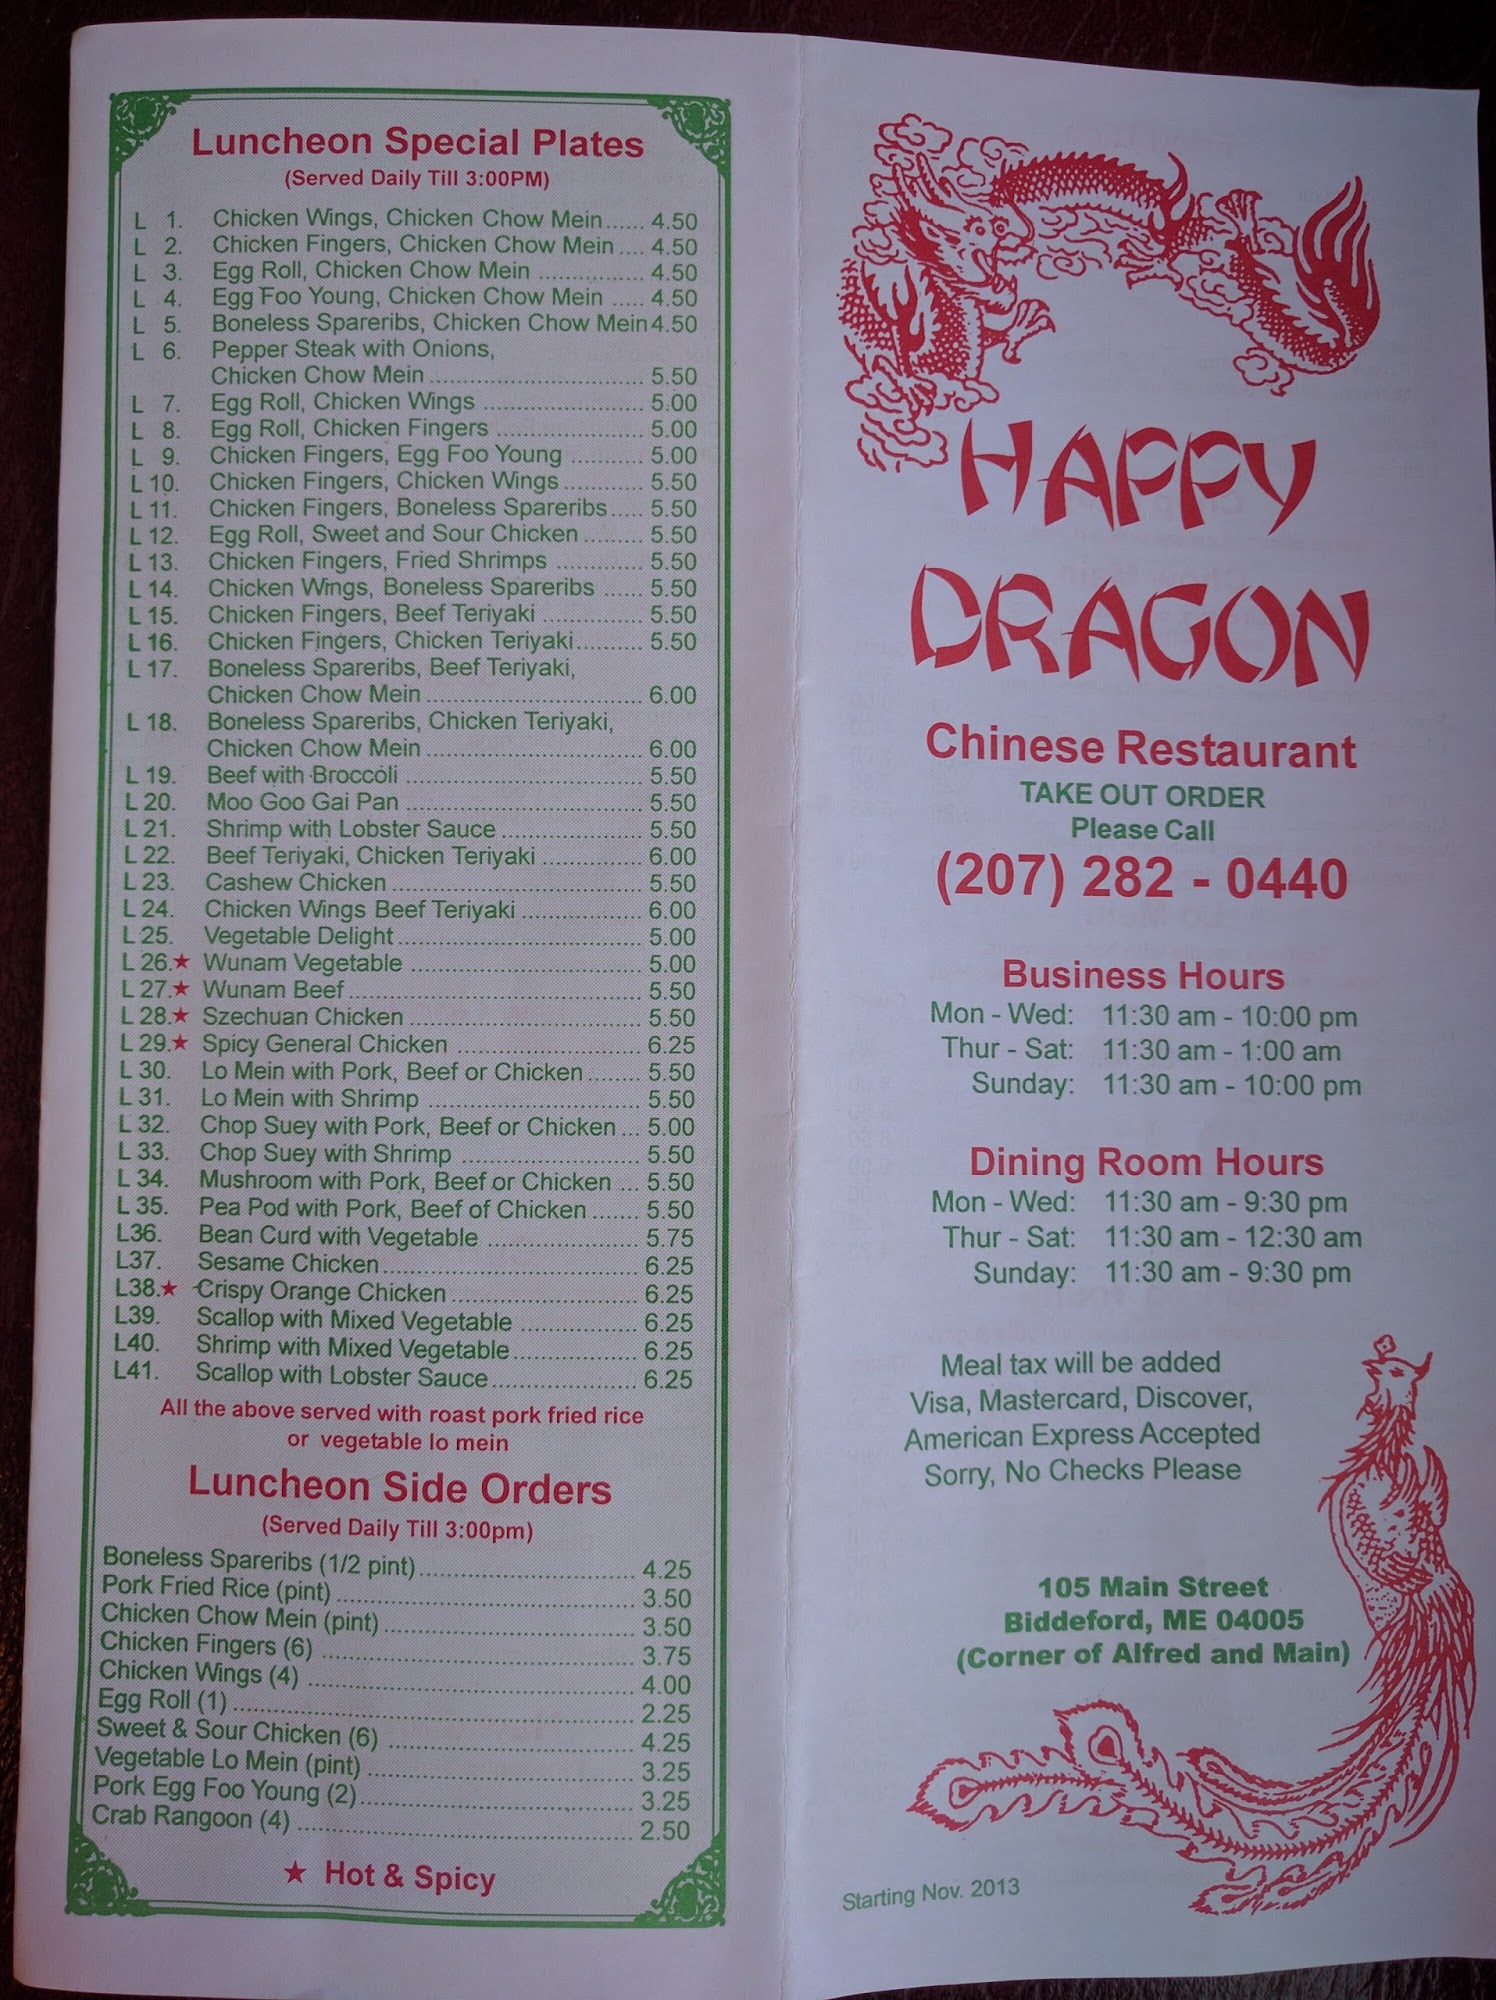 Luncheon Special Plates
(Served Daily Till 3:00PM)
L 1. Chicken Wings, Chicken Chow Mein...... 4.50
L 2. Chicken Fingers, Chicken Chow Mein .... 4.50
L 3. Egg Roll, Chicken Chow Mein ............. 4.50
L 4. Egg Foo Young, Chicken Chow Mein ..... 4.50
L 5. Boneless Spareribs, Chicken Chow Mein 4.50
L 6. Pepper Steak with Onions,
Chicken Chow Mein ........................... 5.50
L 7. Egg Roll, Chicken Wings .................... 5.00
L 8. Egg Roll, Chicken Fingers .................. 5.00
L 9. Chicken Fingers, Egg Foo Young ......... 5.00
L 10. Chicken Fingers, Chicken Wings .......... 5.50
L 11. Chicken Fingers, Boneless Spareribs..... 5.50
L 12. Egg Roll, Sweet and Sour Chicken ........ 5.50
L 13. Chicken Fingers, Fried Shrimps ........... 5.50
L 14. Chicken Wings, Boneless Spareribs ...... 5.50
L 15. Chicken Fingers, Beef Teriyaki ............. 5.50
L 16. Chicken Fingers, Chicken Teriyaki......... 5.50
L 17. Boneless Spareribs, Beef Teriyaki,
Chicken Chow Mein ........................... 6.00
L 18. Boneless Spareribs, Chicken Teriyaki,
Chicken Chow Mein ........................... 6.00
L 19. Beef with Broccoli .............................. 5.50
L 20. Moo Goo Gai Pan .............................. 5.50
L 21. Shrimp with Lobster Sauce .................. 5.50
L 22. Beef Teriyaki, Chicken Teriyaki ............. 6.00
L 23. Cashew Chicken ................................ 5.50
L 24. Chicken Wings Beef Teriyaki ............... 6.00
L 25. Vegetable Delight ............................... 5.00
L 26.★ Wunam Vegetable ............................. 5.00
L 27.★ Wunam Beef ..................................... 5.50
L 28.★ Szechuan Chicken ............................. 5.50
L 29.★ Spicy General Chicken ....................... 6.25
L 30. Lo Mein with Pork, Beef or Chicken ........ 5.50
L 31. Lo Mein with Shrimp ........................... 5.50
L 32. Chop Suey with Pork, Beef or Chicken ... 5.00
L 33. Chop Suey with Shrimp ....................... 5.50
L 34. Mushroom with Pork, Beef or Chicken ... 5.50
L 35. Pea Pod with Pork, Beef of Chicken ....... 5.50
L36. Bean Curd with Vegetable ................... 5.75
L37. Sesame Chicken ................................ 6.25
L38.★ Crispy Orange Chicken ........................ 6.25
L39. Scallop with Mixed Vegetable ............... 6.25
L40. Shrimp with Mixed Vegetable................ 6.25
L41. Scallop with Lobster Sauce................... 6.25
All the above served with roast pork fried rice
or vegetable lo mein
Luncheon Side Orders
(Served Daily Till 3:00pm)
Boneless Spareribs (1/2 pint)............................ 4.25
Pork Fried Rice (pint) ...................................... 3.50
Chicken Chow Mein (pint)................................ 3.50
Chicken Fingers (6) ........................................ 3.75
Chicken Wings (4) .......................................... 4.00
Egg Roll (1) ................................................... 2.25
Sweet & Sour Chicken (6) ................................ 4.25
Vegetable Lo Mein (pint) .................................. 3.25
Pork Egg Foo Young (2)................................... 3.25
Crab Rangoon (4) ........................................... 2.50
★ Hot & Spicy
HAPPY
DRAGON
Chinese Restaurant
TAKE OUT ORDER
Please Call
(207) 282 - 0440
Business Hours
Mon - Wed: 11:30 am - 10:00 pm
Thur - Sat: 11:30 am - 1:00 am
Sunday: 11:30 am - 10:00 pm
Dining Room Hours
Mon - Wed: 11:30 am - 9:30 pm
Thur - Sat: 11:30 am - 12:30 am
Sunday: 11:30 am - 9:30 pm
Meal tax will be added
Visa, Mastercard, Discover,
American Express Accepted
Sorry, No Checks Please
105 Main Street
Biddeford, ME 04005
(Corner of Alfred and Main)
Starting Nov. 2013